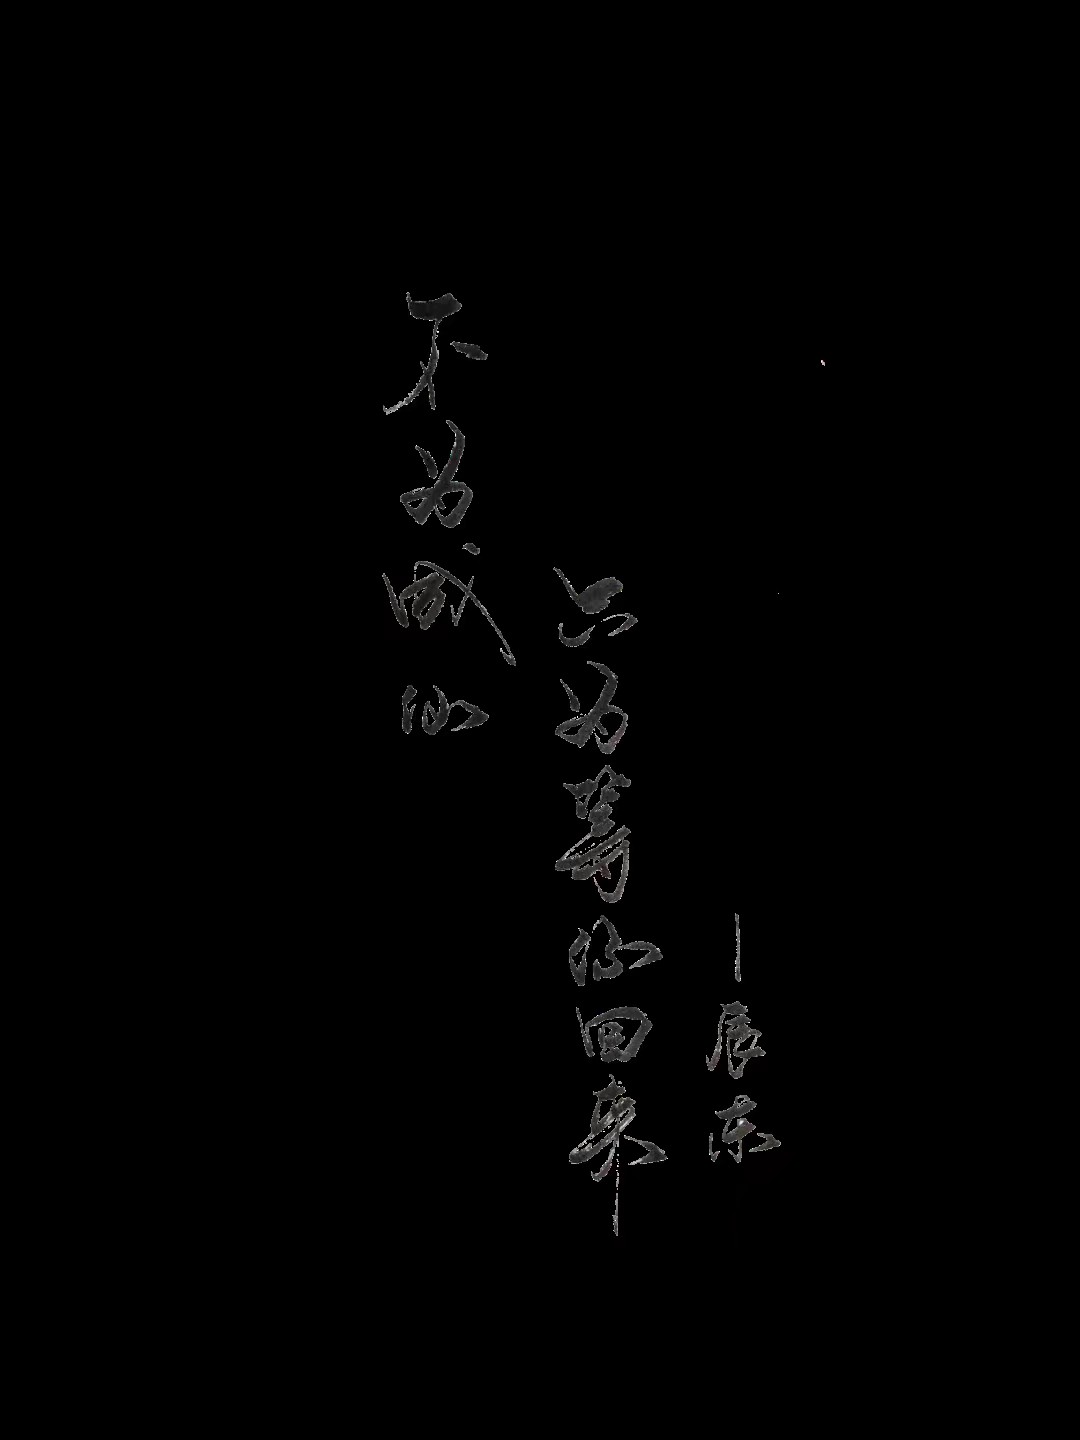 不为成仙
只为等你回来
—辰东